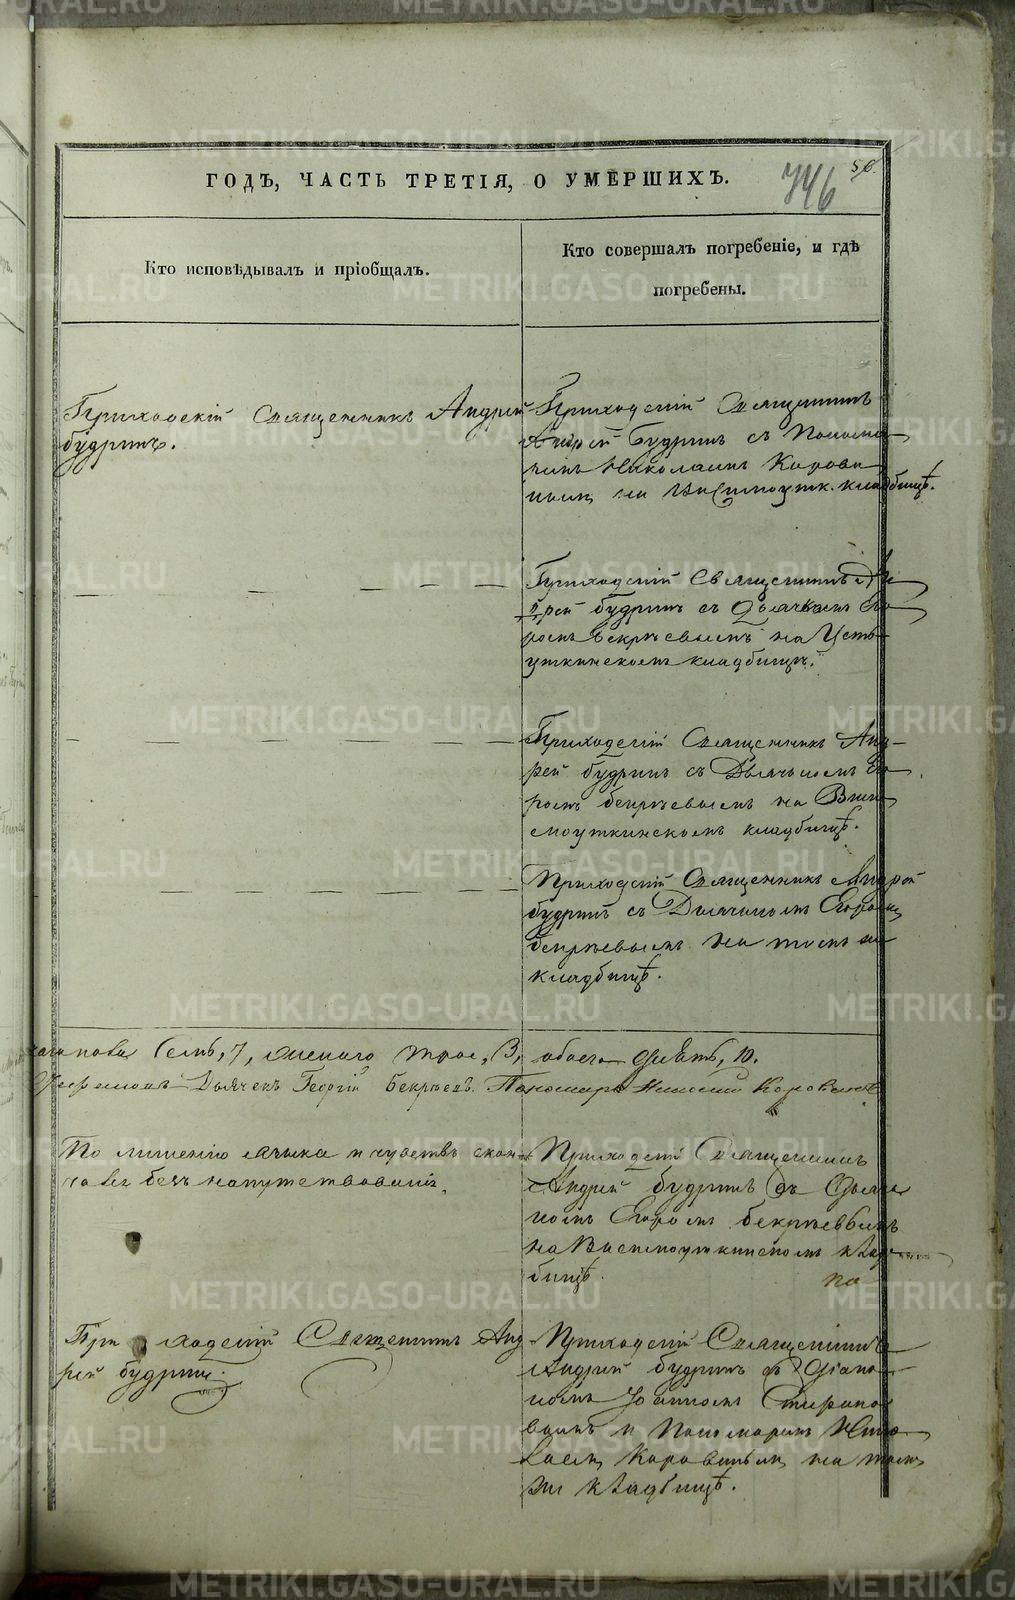 ГОДЪ, ЧАСТЬ ТРЕТІЯ, О УМЕРШИХЪ.
746
56.
Кто исповѣдывалъ и пріобщалъ.
Кто совершалъ погребеніе, и гдѣ
погребены.
Приходскій Священникъ Андрей
Будринъ.
Приходскій Священникъ
Андрей Будринъ съ Понома
ремъ Николаемъ Корови
нымъ на кладбищѣ.
Приходскій Священникъ Ан
дрей Будринъ съ Дьячкомъ Его
ромъ Бекрѣевымъ на Усть
уткинскомъ кладбищѣ.
Приходскій Священникъ Анд
рей Будринъ съ Дьячкомъ Его
ромъ Бекрѣевымъ на Виси
моуткинскомъ кладбищѣ.
Приходскій Священникъ Андрей
Будринъ съ Дьячкомъ Егоромъ
Бекрѣевымъ на томъ же
кладбищѣ.
пола семь, 7, женскаго трое, 3, обоего десять, 10.
Дьячекъ Георгій Бекрѣевъ. Пономарь Николай Коровинъ
По лишенію языка и чувствъ скон
чался безъ напутствованія.
Приходскій Священникъ
Андрей Будринъ съ Дьяч
комъ Егоромъ Бекрѣевымъ
на Висимоуткинскомъ клад
бищѣ.
по
Приходскій Священникъ Анд
рей Будринъ.
Приходскій Священникъ
Андрей Будринъ съ Діако
номъ Іоанномъ
вымъ и Пономаремъ Нико
лаемъ Коровинымъ на томъ
же кладбищѣ.
METRIKI.GASO-URAL.RU